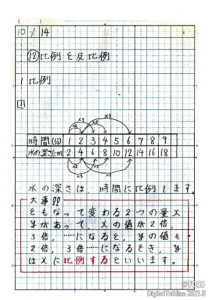 10 / 14
⑫比例と反比例
1 比例
①
×3
×2
時間(分) 1 2 3 4 5 6 7 8 9
水の深さ(cm) 2 4 6 8 10 12 14 16 18
水の深さは、時間に比例します。
大事
ともなって変わる2つの量
があって、Xの値が2倍、
3倍、…になると、の値も
2倍、3倍…になるとき、
はXに比例するといいます。